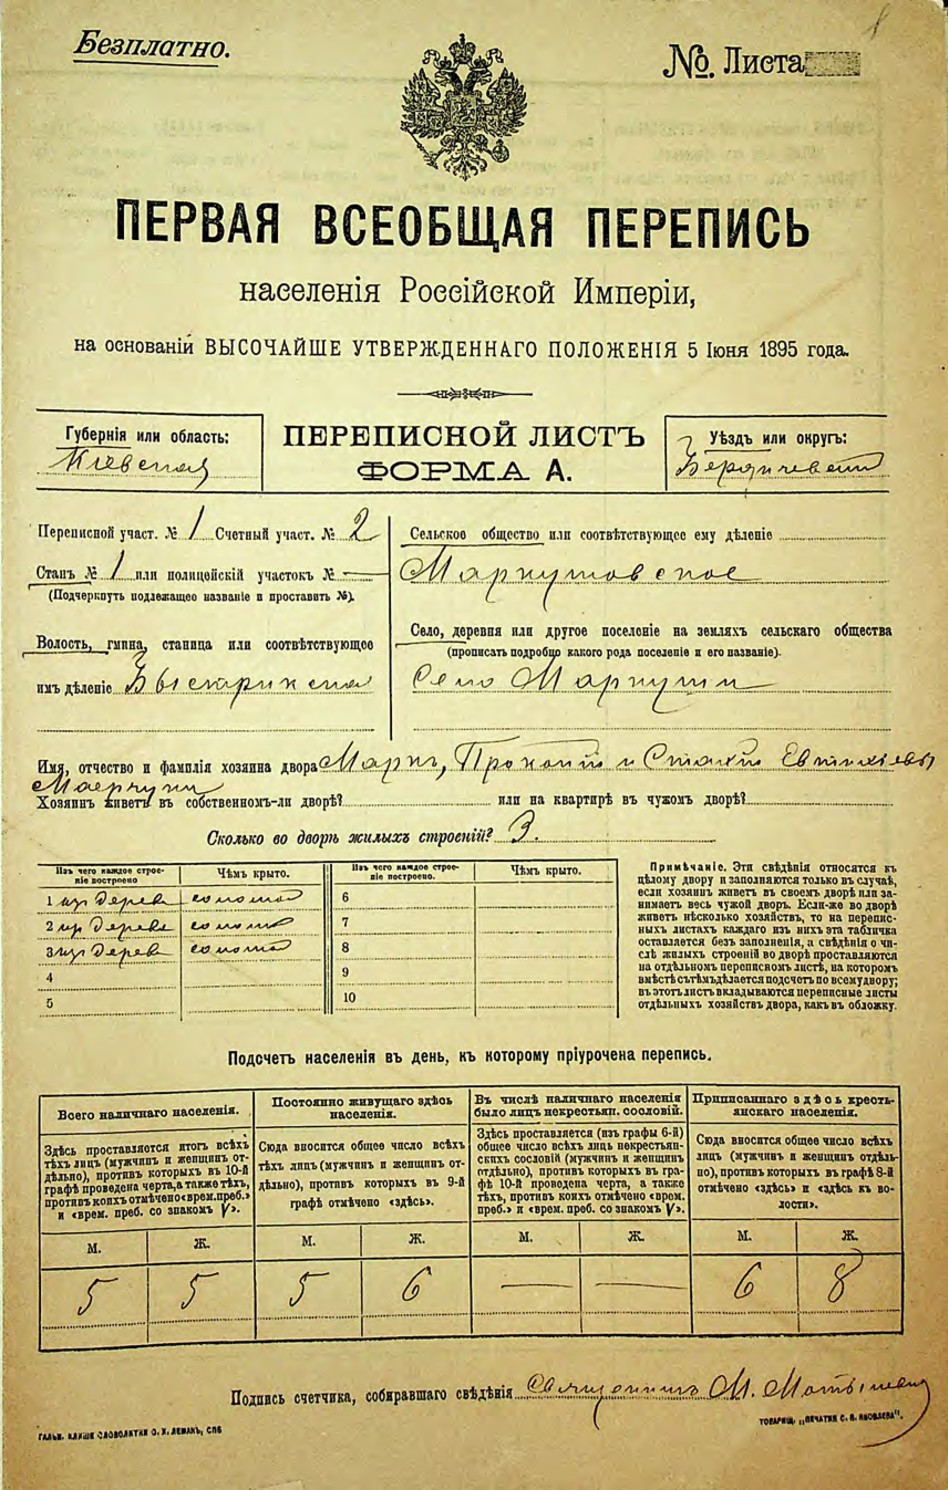 Безплатно.
№. Листа
ПЕРВАЯ ВСЕОБЩАЯ ПЕРЕПИСЬ
населенія Россійской Имперіи,
на основаніи ВЫСОЧАЙШЕ УТВЕРЖДЕННАГО ПОЛОЖЕНІЯ 5 Іюня 1895 года.
Губернія или область:
Кіевская
ПЕРЕПИСНОЙ ЛИСТЪ
ФОРМА А.
Уѣздъ или округъ:
Бердичевскій
Переписной участ. № 1 Счетный участ. № 2
Станъ № 1 или полицейскій участокъ № —
(Подчеркнуть подлежащее названіе и проставить №).
Волость, гмина, станица или соотвѣтствующее
имъ дѣленіе Быстрикская
Сельское общество или соотвѣтствующее ему дѣленіе
Маркушовское
Село, деревня или другое поселеніе на земляхъ сельскаго общества
(прописать подробно какого рода поселеніе и его названіе).
Село Маркуши
Имя, отчество и фамилія хозяина двора Марк, Прокопій и
Хозяинъ живетъ въ собственномъ-ли дворѣ? или на квартирѣ въ чужомъ дворѣ?
Сколько во дворѣ жилыхъ строеній? 3.
Изъ чего каждое строеніе построено
Чѣмъ крыто.
1 из дерева соломой
2 из дерева соломой
3 из дерева соломой
4
5
Изъ чего каждое строеніе построено.
Чѣмъ крыто.
6
7
8
9
10
Примѣчаніе. Эти свѣдѣнія относятся къ
цѣлому двору и заполняются только въ случаѣ,
если хозяинъ живетъ въ своемъ дворѣ или за-
нимаетъ весь чужой дворъ. Если-же во дворѣ
живетъ нѣсколько хозяйствъ, то на перепис-
ныхъ листахъ каждаго изъ нихъ эта табличка
оставляется безъ заполненія, а свѣдѣнія о чи-
слѣ жилыхъ строеній во дворѣ проставляются
на отдѣльномъ переписномъ листѣ, на которомъ
вмѣстѣ съ тѣмъ дѣлается подсчетъ по всему двору;
въ этотъ листъ вкладываются переписные листы
отдѣльныхъ хозяйствъ двора, какъ въ обложку.
Подсчетъ населенія въ день, къ которому пріурочена перепись.
Всего наличнаго населенія.
Здѣсь проставляется итогъ всѣхъ
тѣхъ лицъ (мужчинъ и женщинъ от-
дѣльно), противъ которыхъ въ 10-й
графѣ проведена черта, а также тѣхъ,
противъ коихъ отмѣчено «врем. преб.»
и «врем. преб. со знакомъ V».
М. Ж.
5 5
Постоянно живущаго здѣсь
населенія.
Сюда вносится общее число всѣхъ
тѣхъ лицъ (мужчинъ и женщинъ от-
дѣльно), противъ которыхъ въ 9-й
графѣ отмѣчено «здѣсь».
М. Ж.
5 6
Въ числѣ наличнаго населенія
было лицъ некрестьян. сословій.
Здѣсь проставляется (изъ графы 6-й)
общее число всѣхъ лицъ некрестьян-
скихъ сословій (мужчинъ и женщинъ
отдѣльно), противъ которыхъ въ гра-
фѣ 10-й проведена черта, а также
тѣхъ, противъ коихъ отмѣчено «врем.
преб.» и «врем. преб. со знакомъ V».
М. Ж.
— —
Приписаннаго здѣсь кресть-
янскаго населенія.
Сюда вносится общее число всѣхъ
лицъ (мужчинъ и женщинъ отдѣль-
но), противъ которыхъ въ графѣ 8-й
отмѣчено «здѣсь» и «здѣсь въ во-
лости».
М. Ж.
6 8
Подпись счетчика, собиравшаго свѣдѣнія Священникъ М.
ГАЛЬВ. КЛИШЕ СЛОВОЛИТНИ О. И. ЛЕМАНЪ, СПБ
ТОВАРИЩ. „ПЕЧАТНЯ С. П. ЯКОВЛЕВА“.